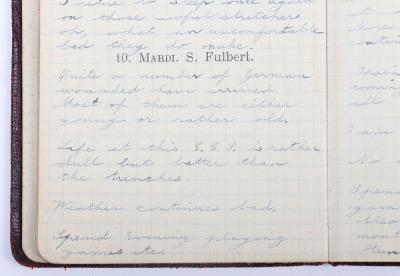 I retire to sleep once again
on those awful stretchers
oh, what an uncomfortable
bed they do make!
10. MARDI. S. Fulbert.
Quite a number of German
wounded have arrived.
Most of them are either
young or rather old.
Life at this C.C.S. is rather
dull but better than
the trenches.
Weather continues bad.
Spend Evening playing
games etc.
More
contin
Train
coming
all
I am
No
Spend
Also
Hun